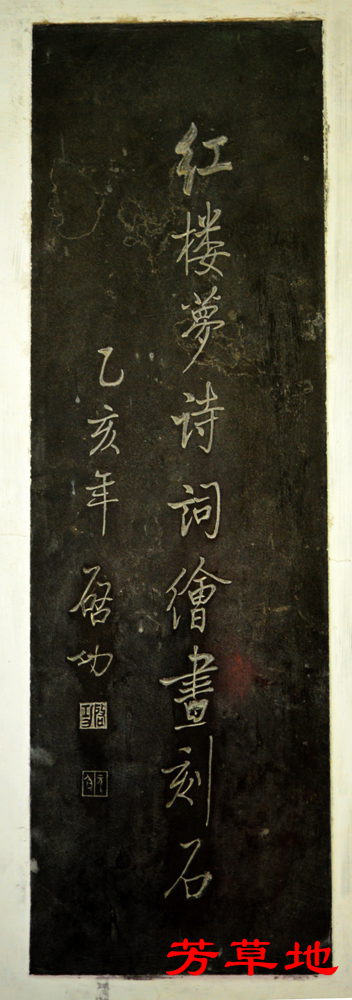 红楼夢诗词繪畫刻石
乙亥年
啓功
芳草地